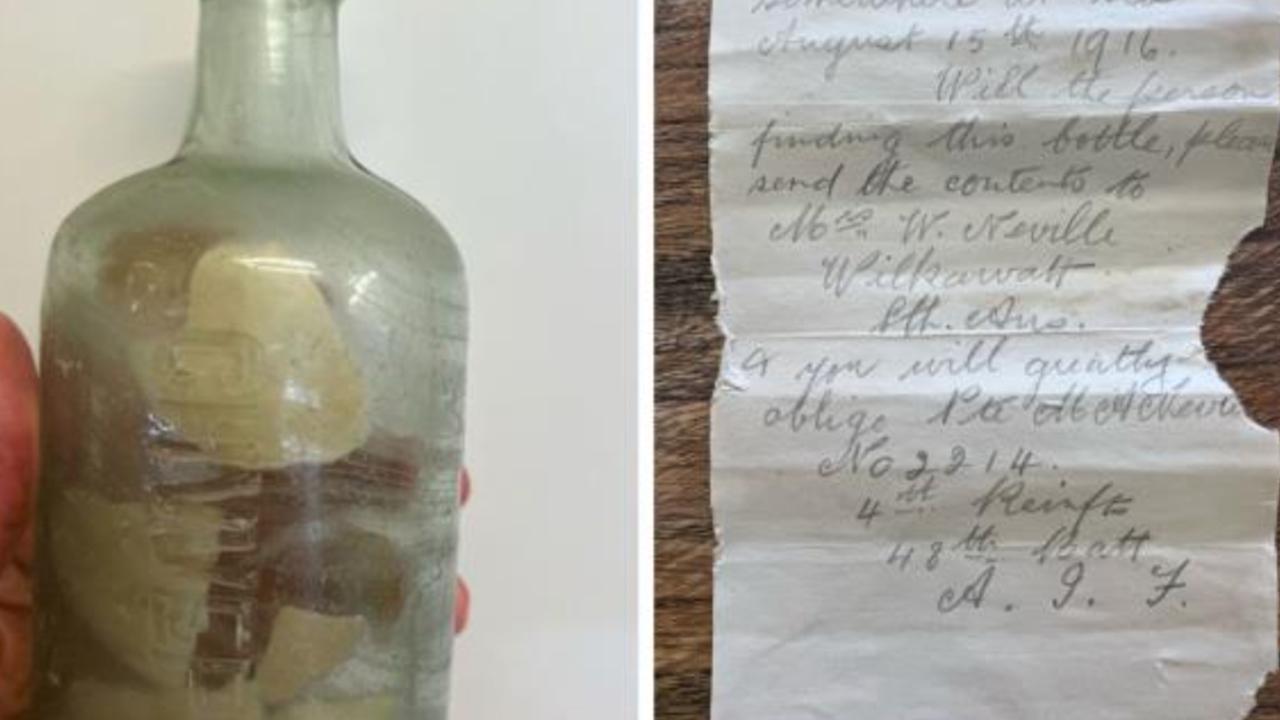 somewhere at sea
August 15th 1916.
Will the person
finding this bottle, pleas
send the contents to
Mrs. W. Neville
Wilkawatt
Sth. Aus.
& you will greatly
oblige Pte
No 2214.
4th Reinfts
48th Batt
A. I. F.